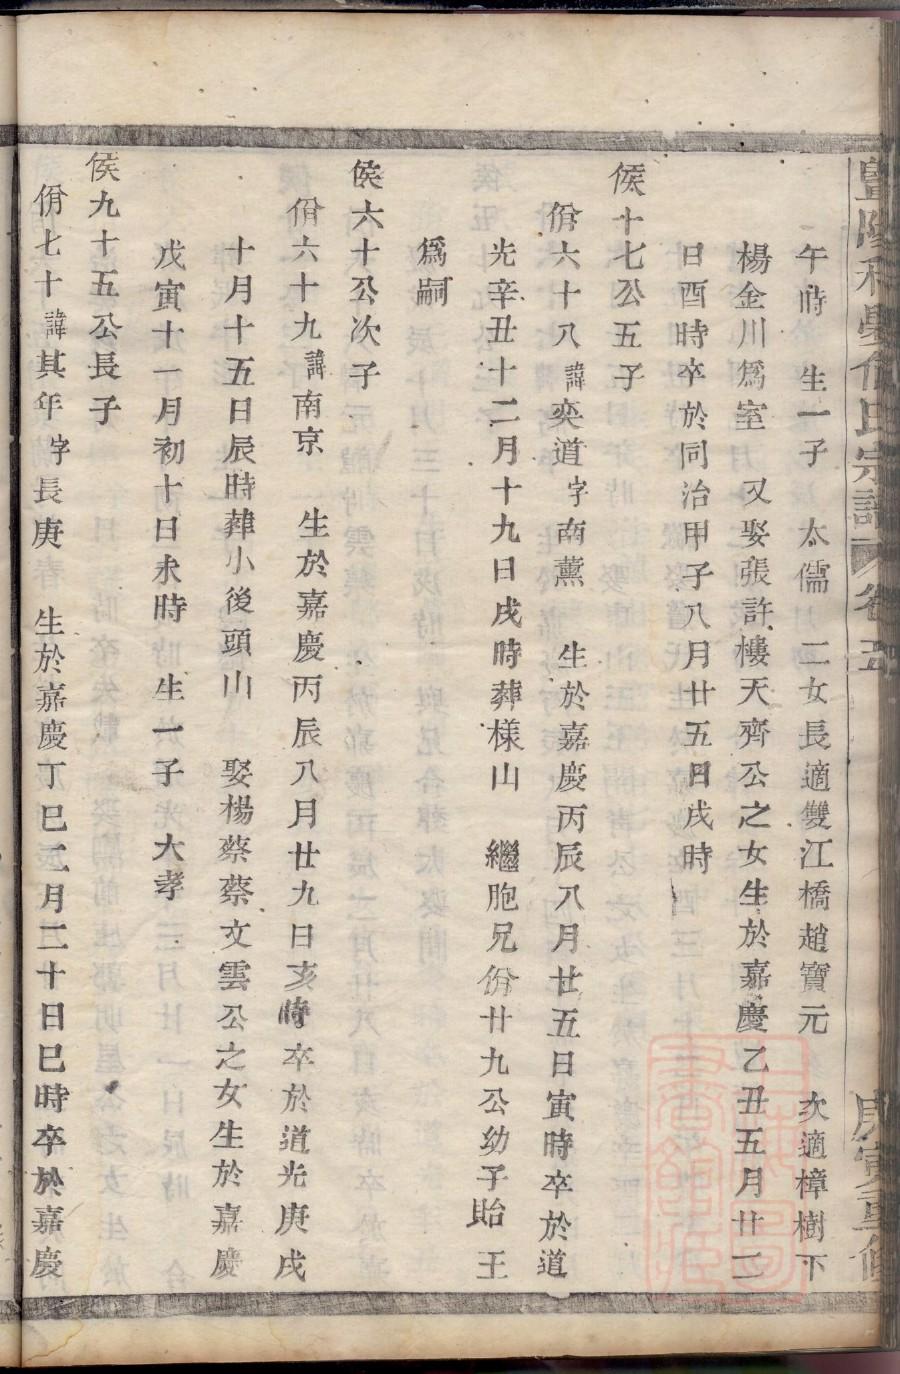 午時 生一子 太儒 二女長適雙江橋趙寶元 次適樟樹下
楊金川爲室 又娶張許樓天齊公之女生於嘉慶乙丑五月廿二
日酉時卒於同治甲子八月廿五日戌時
侯十七公五子
佾六十八諱奕道字南薰 生於嘉慶丙辰八月廿五日寅時卒於道
光辛丑十二月十九日戌時葬樣山 繼胞兄佾廿九公幼子貽王
爲嗣
侯六十公次子
佾六十九諱南京 生於嘉慶丙辰八月廿九日亥時卒於道光庚戌
十月十五日辰時葬小後頭山 娶楊蔡蔡文雲公之女生於嘉慶
戊寅十一月初十日未時 生一子 大孝
侯九十五公長子
佾七十諱其年字長庚 生於嘉慶丁巳二月二十日巳時卒於嘉慶
氏宗譜 卷五 庚寅重修